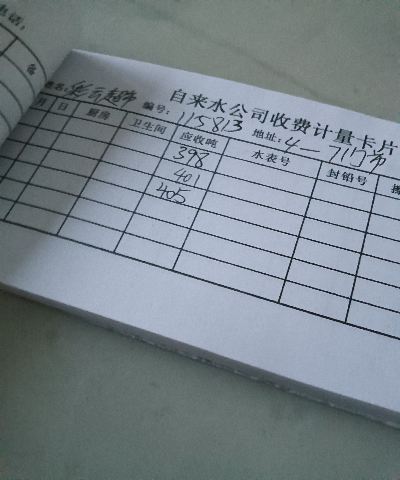 电话:
名
自来水公司收费计量卡片
姓名: 超市 编号: 115813 地址: 4-717
月 日 厨房 卫生间 应收吨 水表号 封铅号
398
401
405